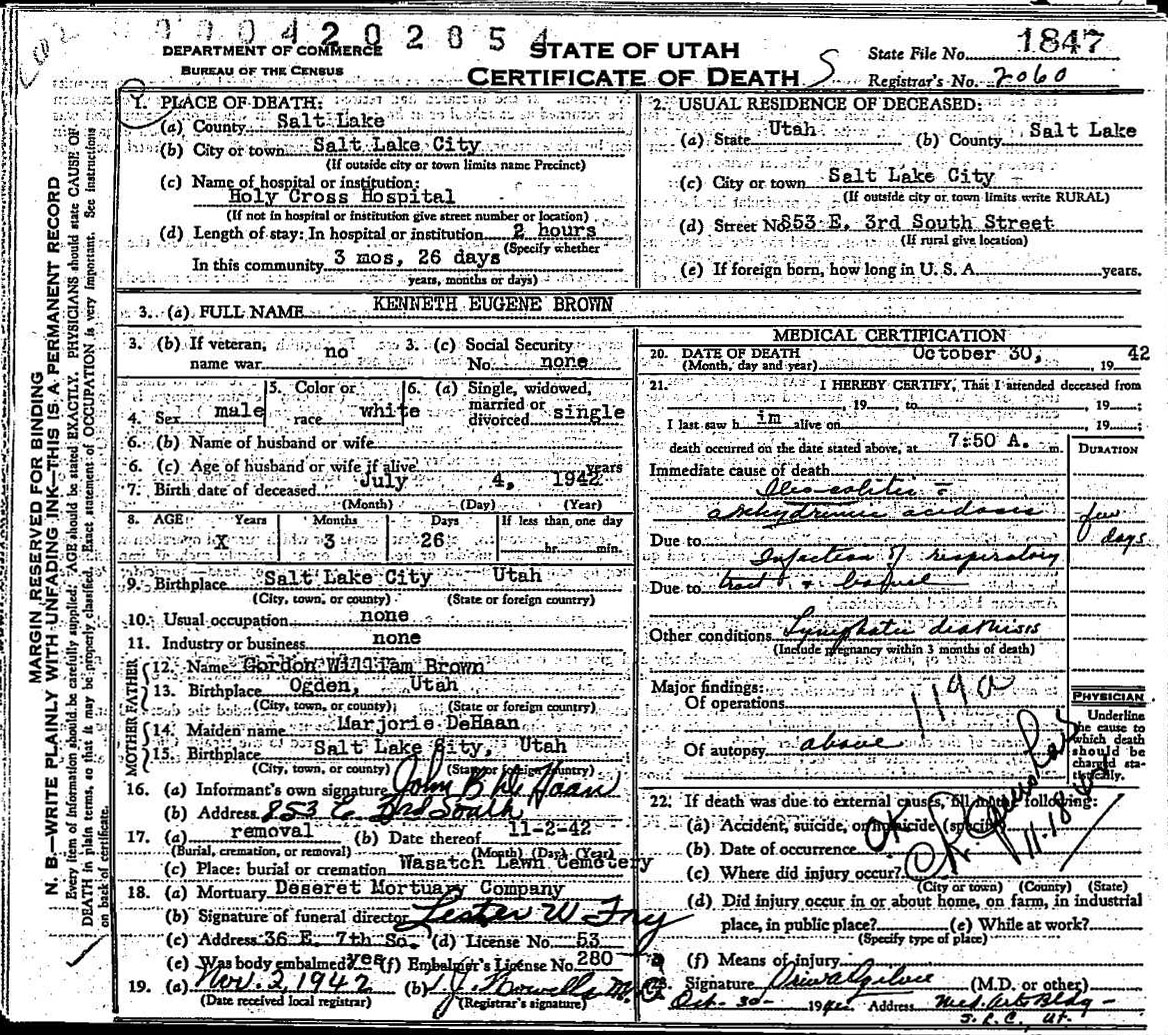 4202054
DEPARTMENT OF COMMERCE
BUREAU OF THE CENSUS
STATE OF UTAH
CERTIFICATE OF DEATH
S
State File No. 1847
Registrar's No. 2060
MARGIN RESERVED FOR BINDING
N. B.—WRITE PLAINLY WITH UNFADING INK—THIS IS A PERMANENT RECORD
Every item of information should be carefully supplied. AGE should be stated EXACTLY. PHYSICIANS should state CAUSE OF
DEATH in plain terms, so that it may be properly classified. Exact statement of OCCUPATION is very important. See instructions
on back of certificate.
1. PLACE OF DEATH:
(a) County Salt Lake
(b) City or town Salt Lake City
(If outside city or town limits name Precinct)
(c) Name of hospital or institution:
Holy Cross Hospital
(If not in hospital or institution give street number or location)
(d) Length of stay: In hospital or institution 2 hours
(Specify whether
In this community 3 mos, 26 days
years, months or days)
2. USUAL RESIDENCE OF DECEASED:
(a) State Utah (b) County Salt Lake
(c) City or town Salt Lake City
(If outside city or town limits write RURAL)
(d) Street No 853 E. 3rd South Street
(If rural give location)
(e) If foreign born, how long in U. S. A. years.
3. (a) FULL NAME KENNETH EUGENE BROWN
3. (b) If veteran, name war no
3. (c) Social Security No. none
4. Sex male
5. Color or race white
6. (a) Single, widowed, married or divorced single
6. (b) Name of husband or wife
6. (c) Age of husband or wife if alive years
7. Birth date of deceased July 4, 1942
(Month) (Day) (Year)
8. AGE Years Months Days If less than one day
X 3 26 hr. min.
9. Birthplace Salt Lake City Utah
(City, town, or county) (State or foreign country)
10. Usual occupation none
11. Industry or business none
FATHER
12. Name Gordon William Brown
13. Birthplace Ogden, Utah
(City, town, or county) (State or foreign country)
MOTHER
14. Maiden name Marjorie DeHaan
15. Birthplace Salt Lake City, Utah
(City, town, or county) (State or foreign country)
16. (a) Informant's own signature John B De Haan
(b) Address 853 E 3rd South
17. (a) removal (b) Date thereof 11-2-42
(Burial, cremation, or removal) (Month) (Day) (Year)
(c) Place: burial or cremation Wasatch Lawn Cemetery
18. (a) Mortuary Deseret Mortuary Company
(b) Signature of funeral director Lester W. Fry
(c) Address 36 E. 7th So. (d) License No. 53
(e) Was body embalmed? yes (f) Embalmer's License No 280
19. (a) Nov. 2, 1942 (b)
(Date received local registrar) (Registrar's signature)
MEDICAL CERTIFICATION
20. DATE OF DEATH October 30, 1942
(Month, day and year)
21. I HEREBY CERTIFY, That I attended deceased from
, 19 to , 19 ;
I last saw h im alive on , 19 ;
death occurred on the date stated above, at 7:50 A. m.
DURATION
Immediate cause of death
Ileo-colitis
anhydremic acidosis
few days
Due to Infection of respiratory
Due to tract & bowel
Other conditions Lymphatic diathisis
(Include pregnancy within 3 months of death)
Major findings:
Of operations
119a
Of autopsy above
PHYSICIAN
Underline
the cause to
which death
should be
charged sta-
tistically.
22. If death was due to external causes, fill in the following:
(a) Accident, suicide, or homicide (specify)
(b) Date of occurrence
OK
(c) Where did injury occur?
(City or town) (County) (State)
(d) Did injury occur in or about home, on farm, in industrial
place, in public place? (e) While at work?
(Specify type of place)
(f) Means of injury
23. Signature (M.D. or other)
Oct-30- 1942 Address Med. Arts Bldg-
S. L. C., Ut.